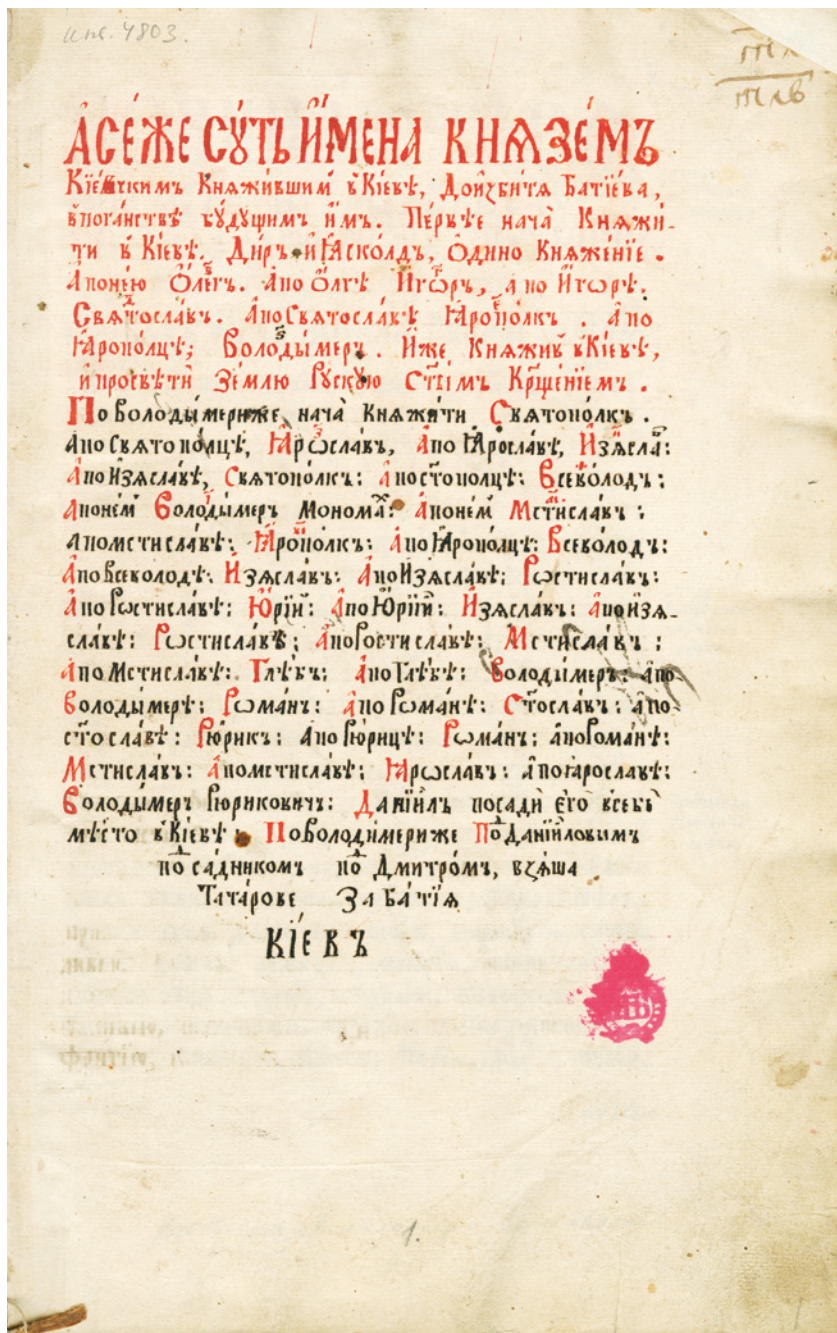 инв. 4803.
тла
тлв
А СЕ́ЖЕ СУ́ТЬ И́МЕНА КНѦЗЕ́МЪ
Кїевъскимъ Кнѧжи́вшим̾ в̾ Кі́евѣ, До и҆збитя Баті́ева,
в̾ пога́нствѣ бу́дущимъ и҆́м. Пе́рвѣе нача̀ Кнѧжи́-
ти в̾ Кі́евѣ. Ди́ръ и҆ Ꙗ҆ско́лдъ, Ѻ҆ди́но Кнѧже́нїе.
А по нею̀ О҆ле́гъ. А по О҆лгѣ И҆́гѡръ, а по И҆́гѡрѣ.
Свято́славъ. А по Свято́славѣ Ꙗ҆ропо́лкъ. А по
Ꙗ҆ропо́лцѣ; Володы́меръ. И҆́же Кнѧжи́в̾ в̾ Кі́евѣ,
и҆ просвѣтѝ Зе́млю Рускую Ст҃ы́мъ Кр҃ще́нїемъ.
По Володы́мериже нача̀ Кнѧжи́ти Свѧтопо́лкъ.
А по Свято по́лцѣ, Ꙗ҆росла́въ, А по Ꙗ҆росла́вѣ, И҆зѧсла́в:
А по И҆зѧсла́вѣ, Свѧтопо́лкъ: А по ст҃опо́лцѣ: Все́володъ:
А по не́м̾ Володы́меръ Монома́х: А по не́м̾ Мсти́славъ:
А по мсти́славѣ: Ꙗ҆ропо́лкъ: А по Ꙗ҆ропо́лцѣ: Все́володъ:
А по Все́володѣ: И҆зѧсла́въ: А по И҆зѧсла́вѣ: Рости́славъ:
А по Рости́славѣ: Ю҆́рїй: А по Ю҆́рїи: И҆зѧсла́въ: А по И҆зѧ-
сла́вѣ: Рѡсти́славѣ; А по Рости славѣ: Мсти́славъ:
А по Мсти́славѣ: Глѣ́бъ: А по Глѣ́бѣ: Володы́меръ: А по-
Володы́мерѣ: Рѡма́нъ: А по Рома́нѣ: Ст҃осла́въ: а по-
ст҃о сла́вѣ: Рю́рикъ: А по Рю́рицѣ: Рѡма́нъ: а по Рома́нѣ:
Мсти́славъ: А по мсти́славѣ: Ꙗ҆рѡсла́въ: а по ꙗросла́вѣ:
Володы́меръ Рю́риковичъ: Данїи́лъ посади̾ е҆го̀ в̾себѣ̀
мѣ́сто в̾ Кі́евѣ: По Володи́мериже По҆д̾ Данїи́ловымъ
по са́дником̾ по҆д̾ Дмитро́мъ, взѧ́ша
Тата́рове За Ба́тїѧ
КІ́ЕВЪ
1.